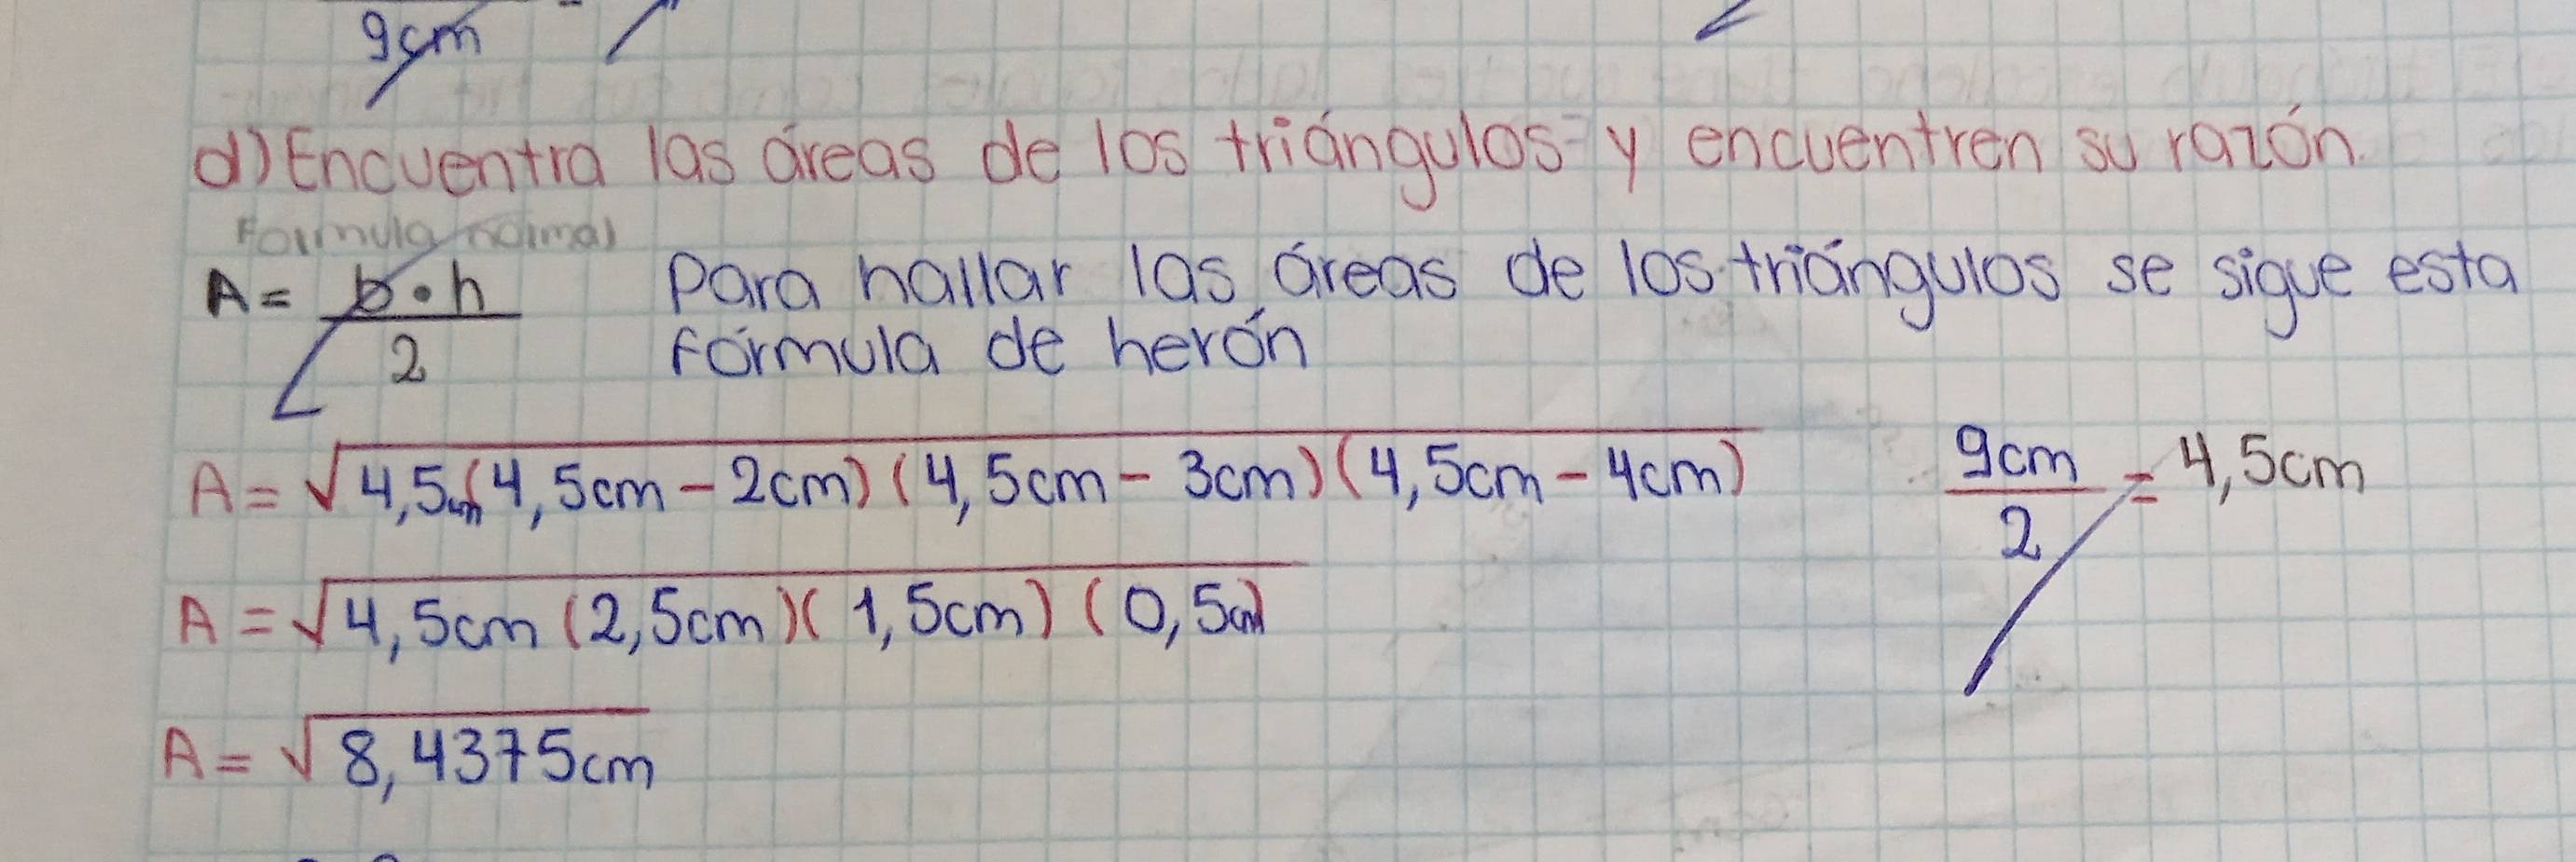 9cm
d) Encuentra las áreas de los triángulos y encuentren su razón.
Formula normal
A = b·h / 2
Para hallar las áreas de los triángulos se sigue esta
fórmula de herón
A = √4,5cm(4,5cm - 2cm)(4,5cm - 3cm)(4,5cm - 4cm)
9cm / 2 = 4,5cm
A = √4,5cm (2,5cm)(1,5cm)(0,5cm)
A = √8,4375cm